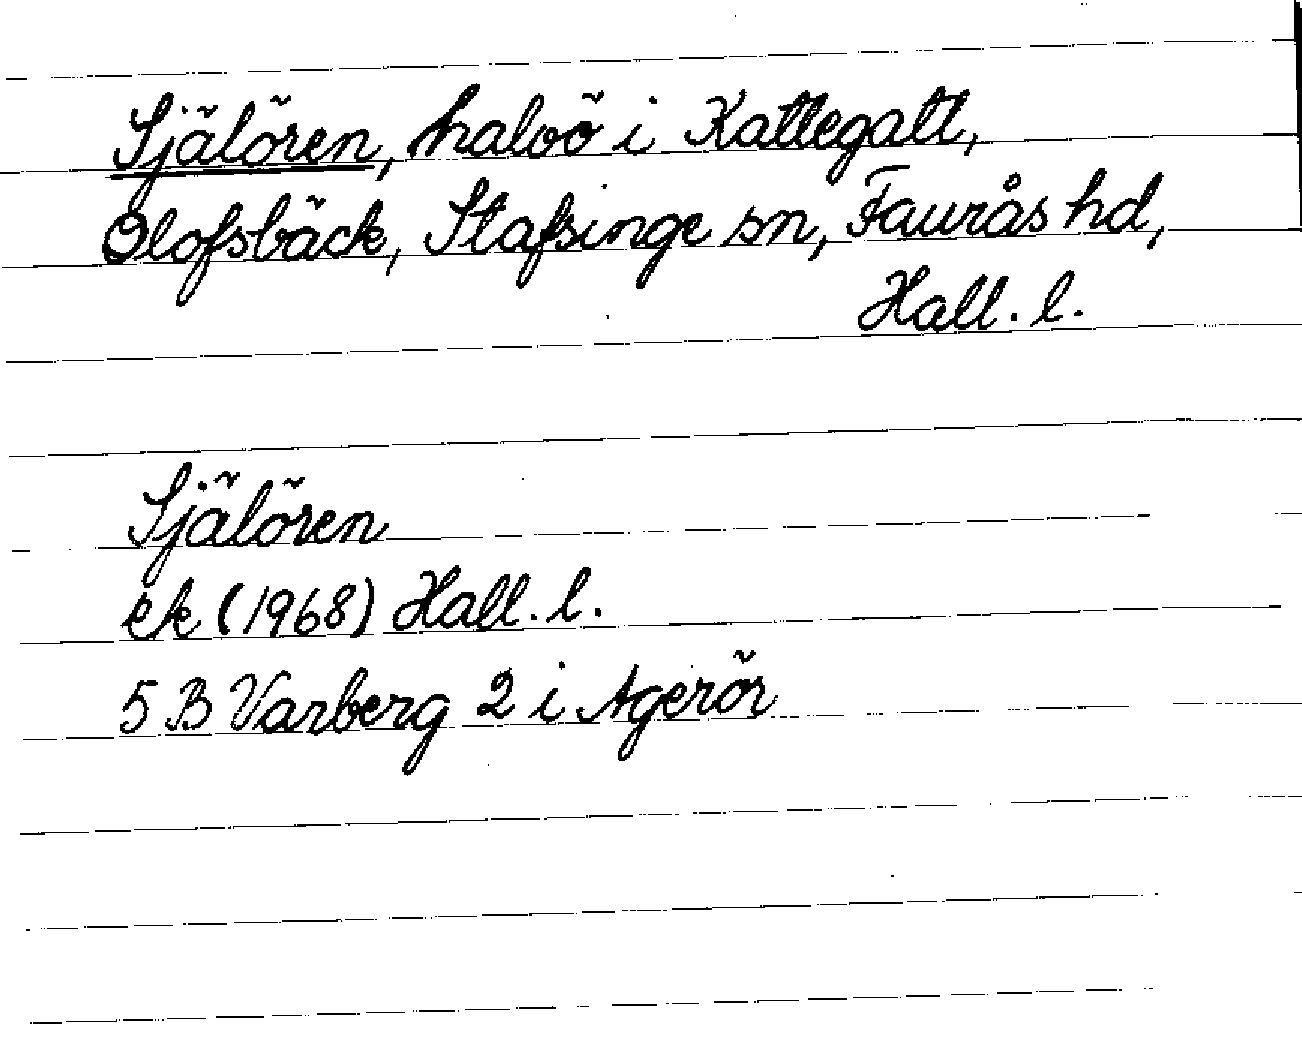 Själören, halvö i Kattegatt,
Olofsbäck, Stafsinge sn, Faurås hd,
Hall. l.
Själören
ek (1968) Hall. l.
5 B Varberg 2 i Agerör